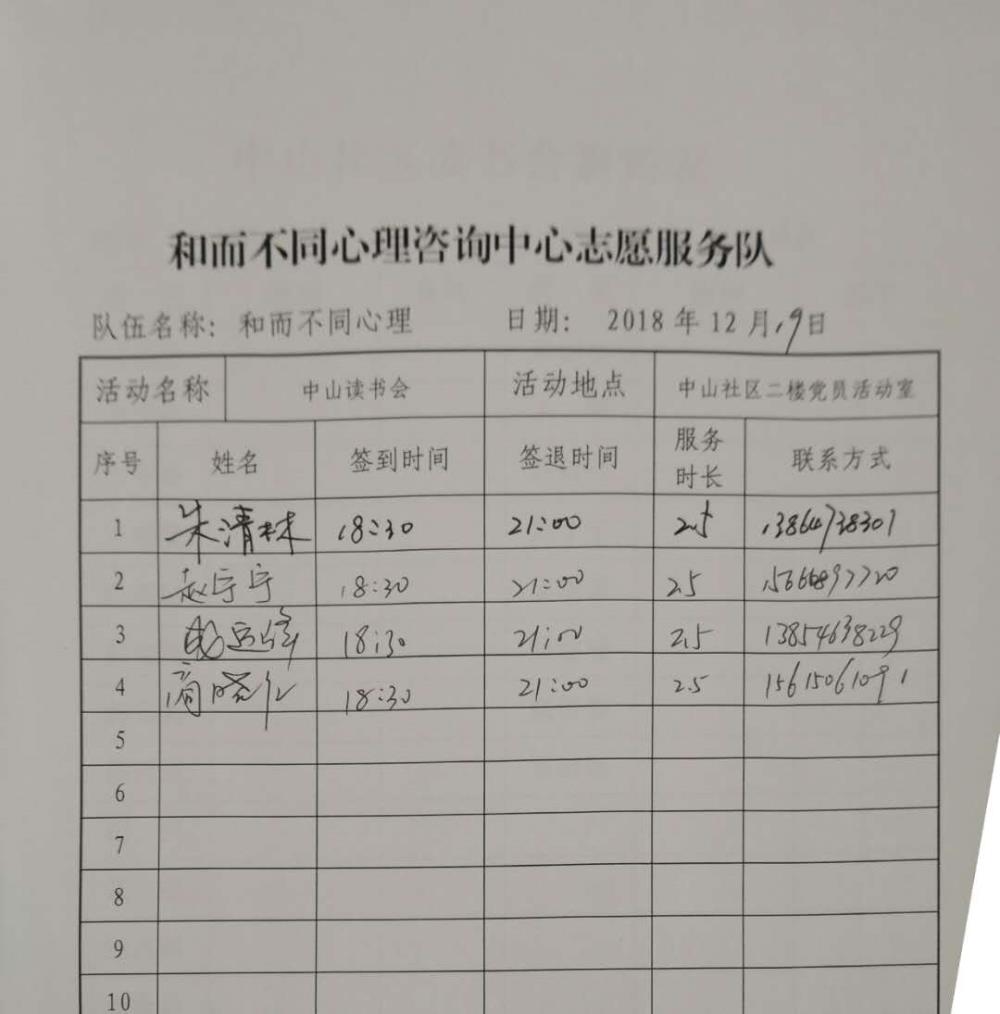 和而不同心理咨询中心志愿服务队
队伍名称：和而不同心理 日期： 2018年12月19日
活动名称 中山读书会 活动地点 中山社区二楼党员活动室
序号 姓名 签到时间 签退时间 服务时长 联系方式
1 朱清林 18:30 21:00 2.5 13864738301
2 赵宁宁 18:30 21:00 2.5
3 18:30 21:00 2.5 13854638229
4 商晓 18:30 21:00 2.5 15615061091
5
6
7
8
9
10